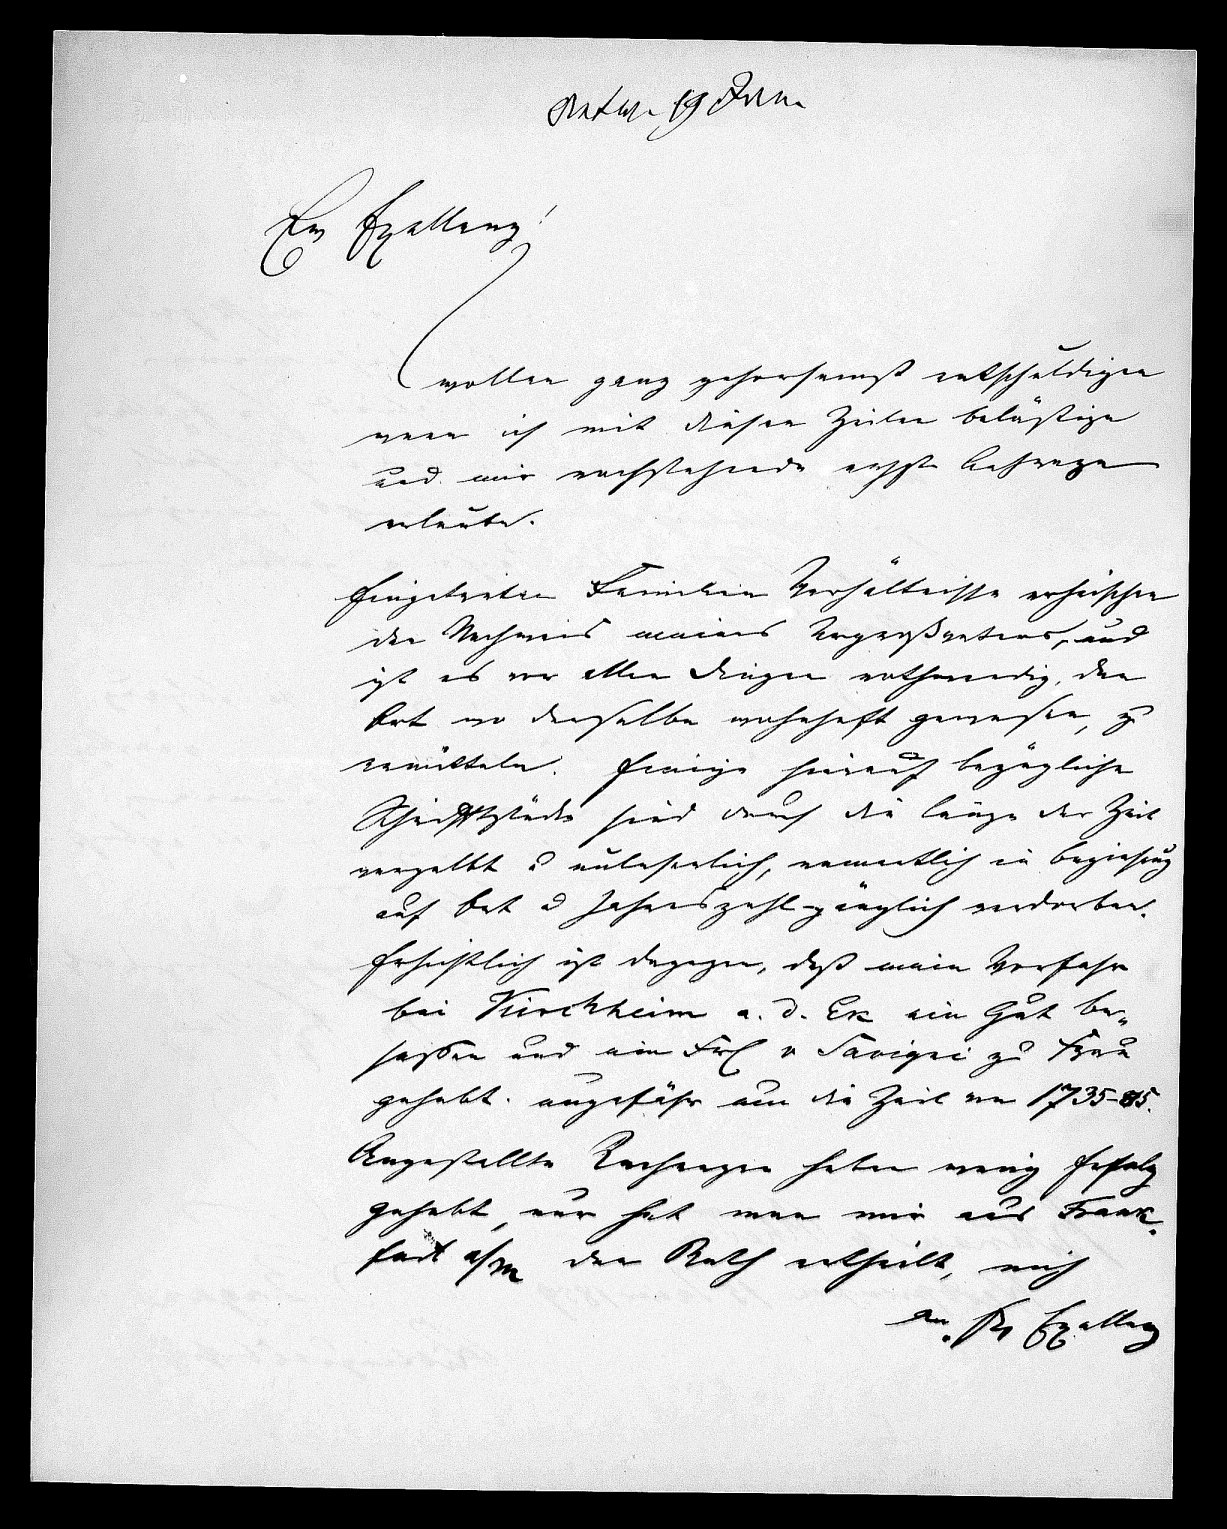 Antw. 19 Jan.
Ew Exellenz!
wollen ganz gehorsamst entschuldigen
wenn ich mit diesen Zeilen belästige
und mir nachstehende erste Anfrage
erlaube.
Eingetretene Familien Verhältnisse erheischen
den Nachweis meines Urgroßvaters, und
ist es vor allen Dingen nothwendig, den
Ort wo derselbe wohnhaft gewesen, zu
ermitteln. Einige hierauf bezügliche
Schriftstücke sind durch die Länge der Zeit
vergelbt u unleserlich, namentlich in Beziehung
auf Ort u Jahreszahl gänzlich verdorben.
Ersichtlich ist dagegen, daß mein Vorfahr
bei Kirchheim a. d. Ek ein Gut be„
sessen und ein Frl v Savigni zu Frau
gehabt. ungefähr um die Zeit von 1735-85.
Angestellte Recherchen haben wenig Erfolg
gehabt, nur hat man mir aus Frank-
furt a/m den Rath ertheilt, mich
an Ew Exellenz